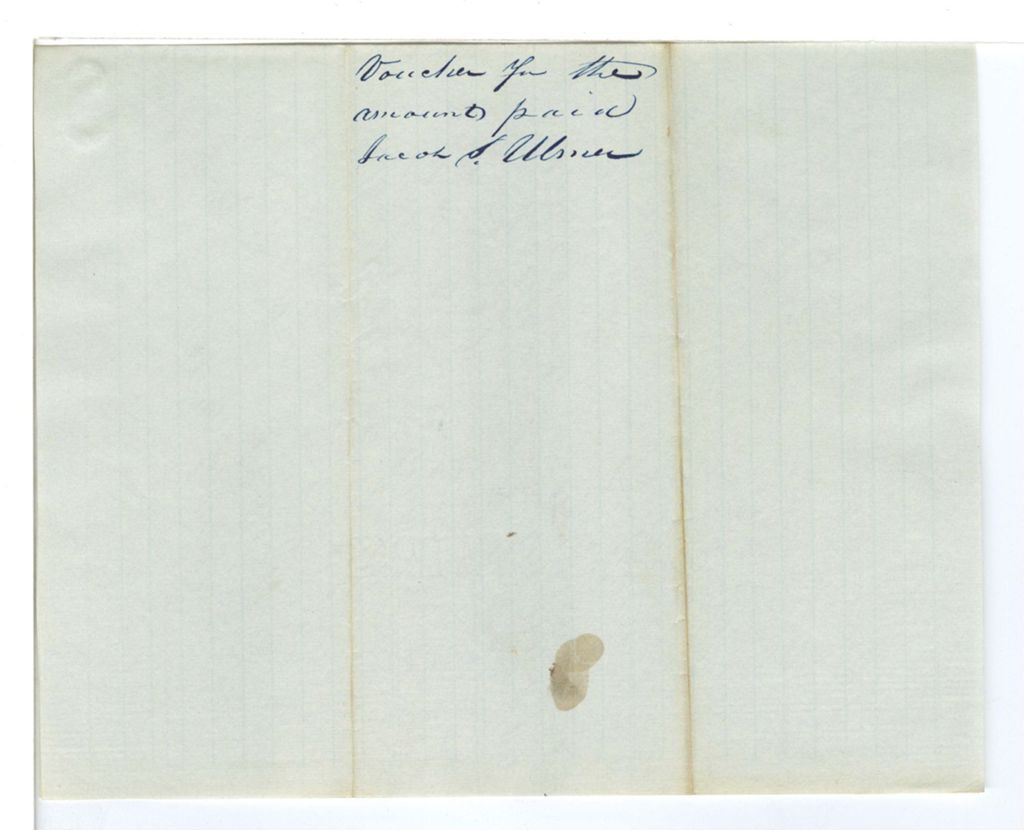 Voucher for the
amount paid
Jacob S. Ulmer